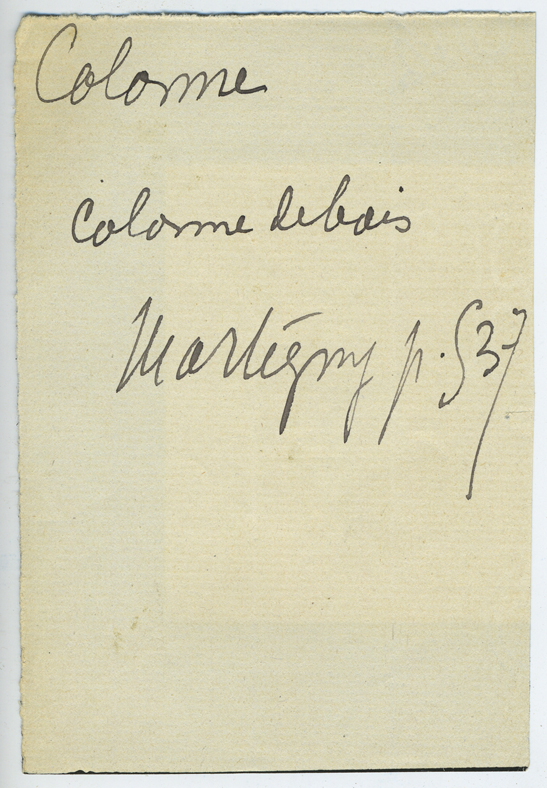 Colonne
colonne de bois
Martigny p. 537